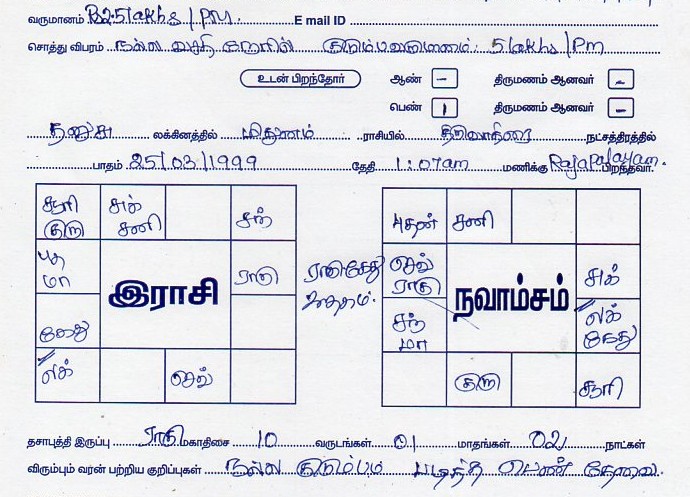 வருமானம் Rs 2.5 lakhs / PM E mail ID
சொத்து விபரம் நல்ல வசதி குடும்ப வருமானம்: 5 lakhs / PM
உடன் பிறந்தோர் ஆண் – திருமணம் ஆனவர் –
பெண் 1 திருமணம் ஆனவர் –
தனுசு லக்கினத்தில் மிதுனம் ராசியில் திருவாதிரை நட்சத்திரத்தில்
பாதம் 25/03/1999 தேதி 1:07am மணிக்கு Rajapalayam பிறந்தவர்.
சூரி சுக் சந் புதன் சனி
குரு சனி
புத ராகு ராகுகேது செவ் சுக்
மா ராகு
இராசி நவாம்சம்
கேது சந் லக்
மா கேது
லக் செவ் குரு சூரி
தசாபுத்தி இருப்பு ராகு மகாதிசை 10 வருடங்கள் 01 மாதங்கள் 02 நாட்கள்
விரும்பும் வரன் பற்றிய குறிப்புகள் நல்ல குடும்பம் படித்த பெண் தேவை.